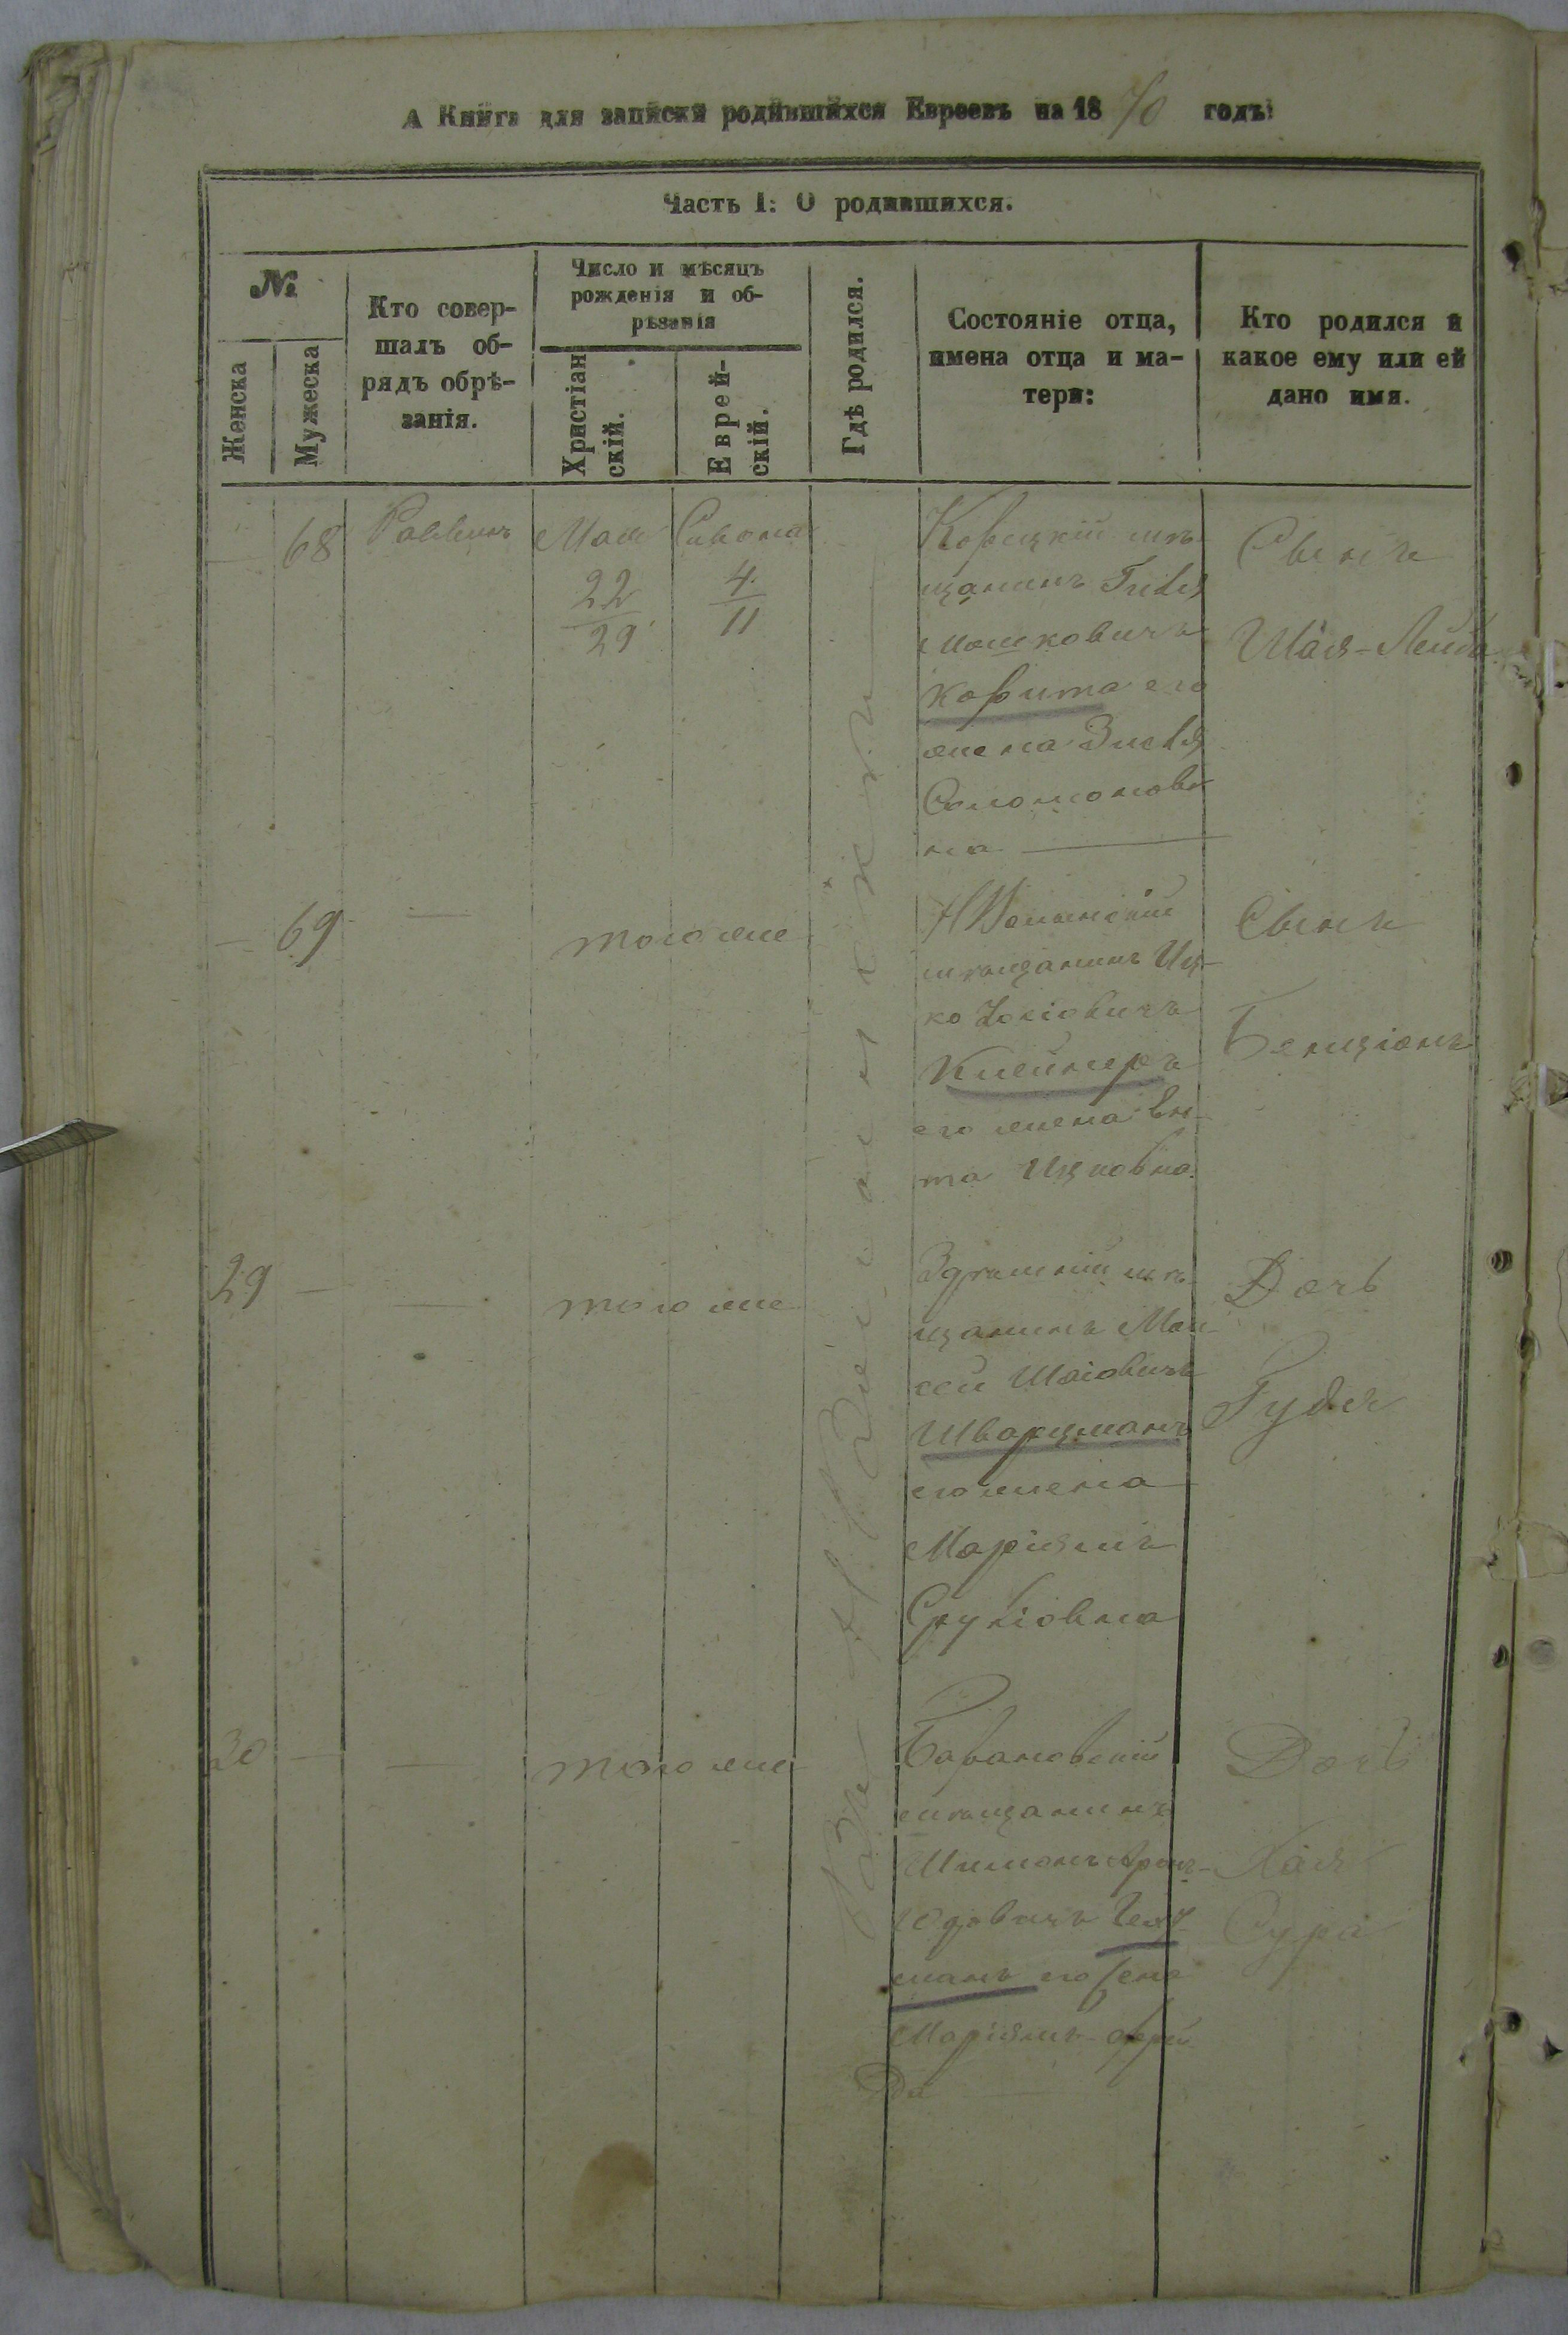 А Книга для записки родившихся Евреевъ на 1870 годъ:
Часть I: О родившихся.
№
Женска
Мужеска
Кто совер-
шалъ об-
рядъ обрѣ-
занія.
Число и мѣсяцъ
рожденія и об-
рѣзанія
Христіан
скій.
Еврей-
скій.
Гдѣ родился.
Состояніе отца,
имена отца и ма-
тери:
Кто родился и
какое ему или ей
дано имя.
— 68
Раввинъ
Мая
22
29
Сивона
4
11
Корецкій мѣ
щанинъ
Мошковичъ
Корита его
жена Зисля
Соломонов
на
Сынъ
Шая-Лейба
— 69
—
тогоже
НВолынскій
мѣщанинъ Иц-
ко
Клейнеръ
его жена Ен-
та Ицковна
Сынъ
Бенціонъ
29 —
—
тогоже
мѣ
щанинъ Мои
сей Шаіовичъ
Шварцманъ
его жена
Маріямъ
Сруліовна
Дочь
Гудя
30 —
—
тогоже
Барановскій
мѣщанинъ
Шимонъ Аронъ-
Юдовичъ
манъ его жена
Маріямъ-Фрей
да
Дочь
Хая
Сура